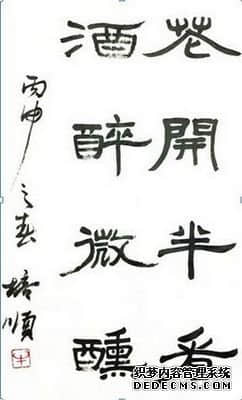 花開半看
酒醉微醺
丙申之春 培順
织梦内容管理系统
DEDECMS.COM